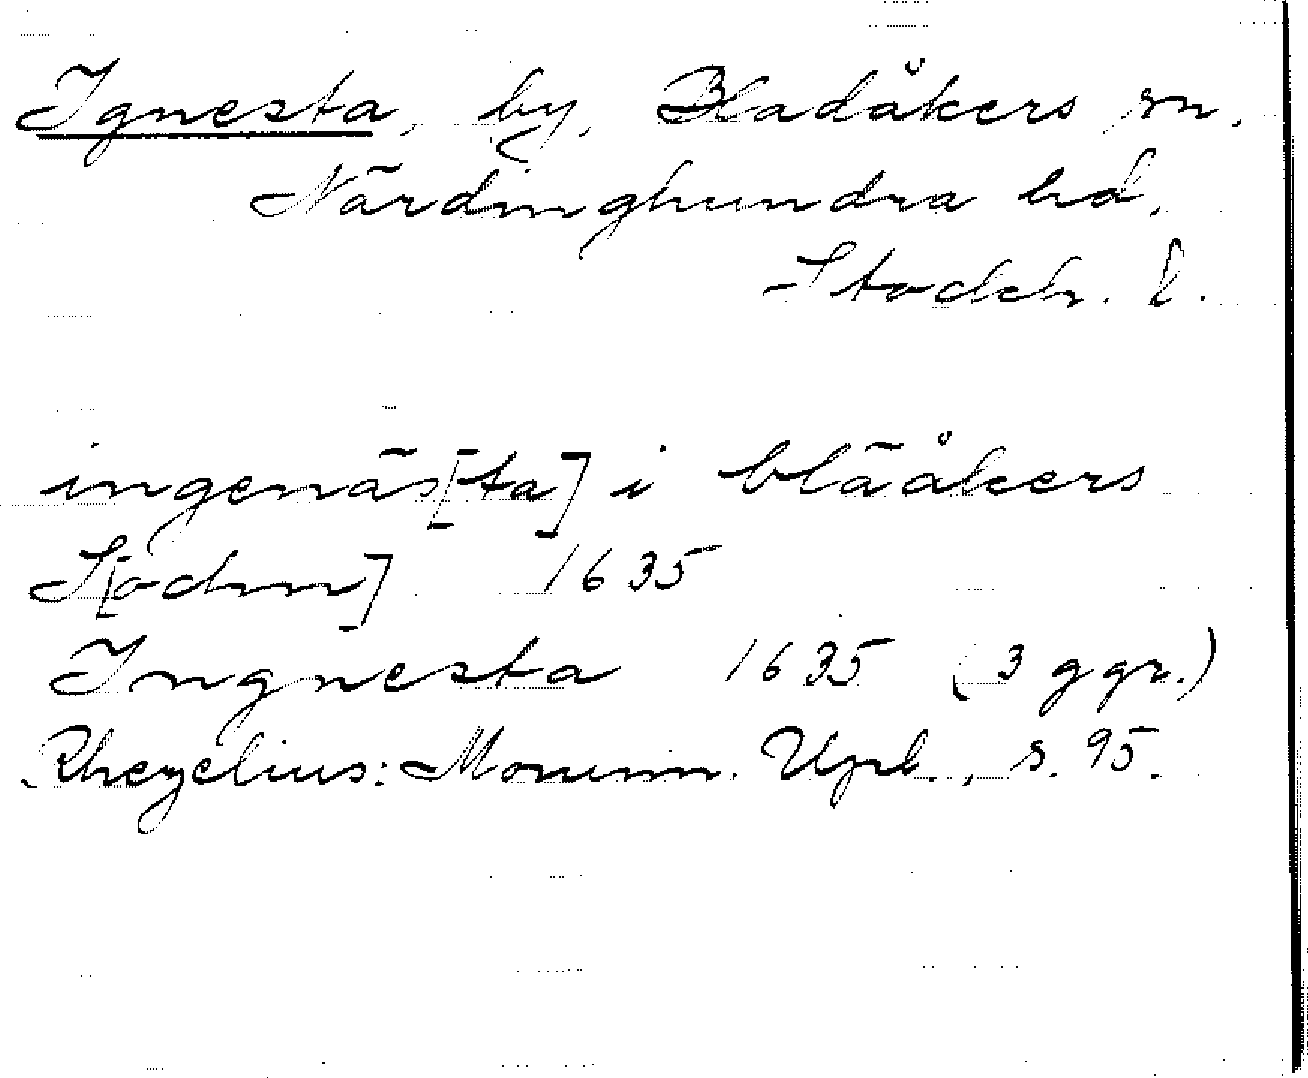 Ignesta, by, Bladåkers sn.
Närdinghundra hd.
Stockh. l.
ingenäs[ta] i blääkers
S[ochn] 1635
Ingnesta 1635 (3 ggr.)
Rhezelius: Monum. Upl., s. 95.